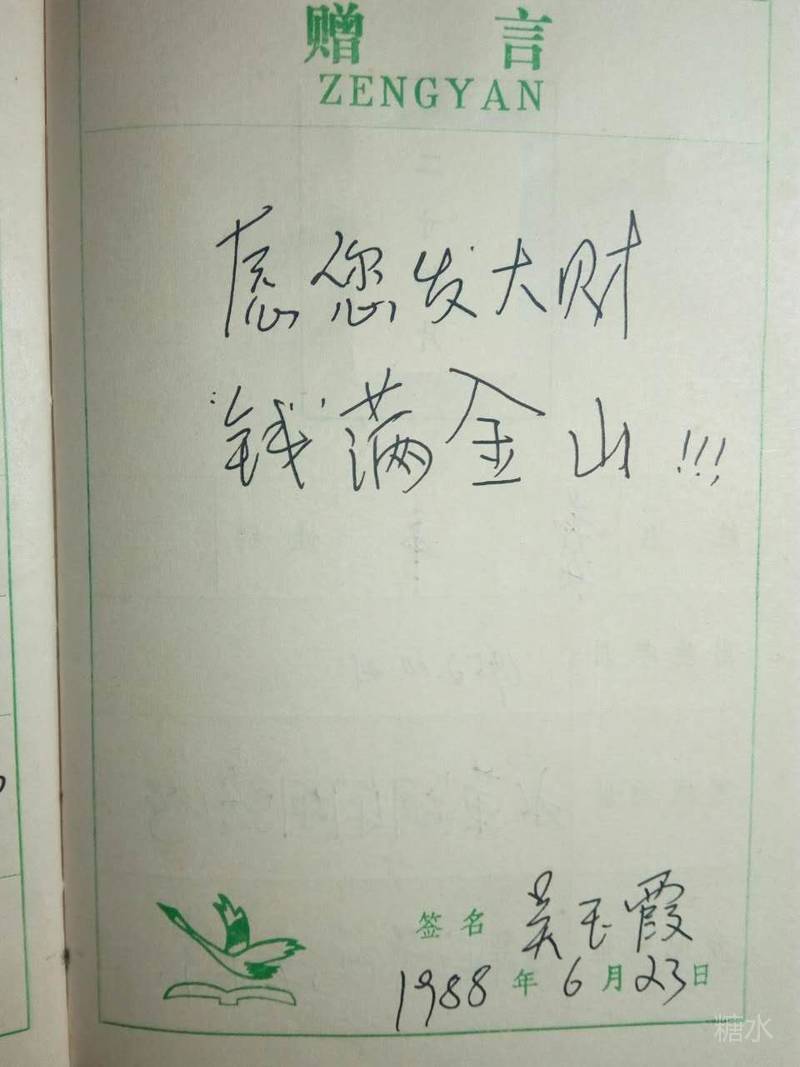 赠言
ZENGYAN
愿您发大财
钱满金山!!!
签名 吴玉霞
1988年6月23日
糖水